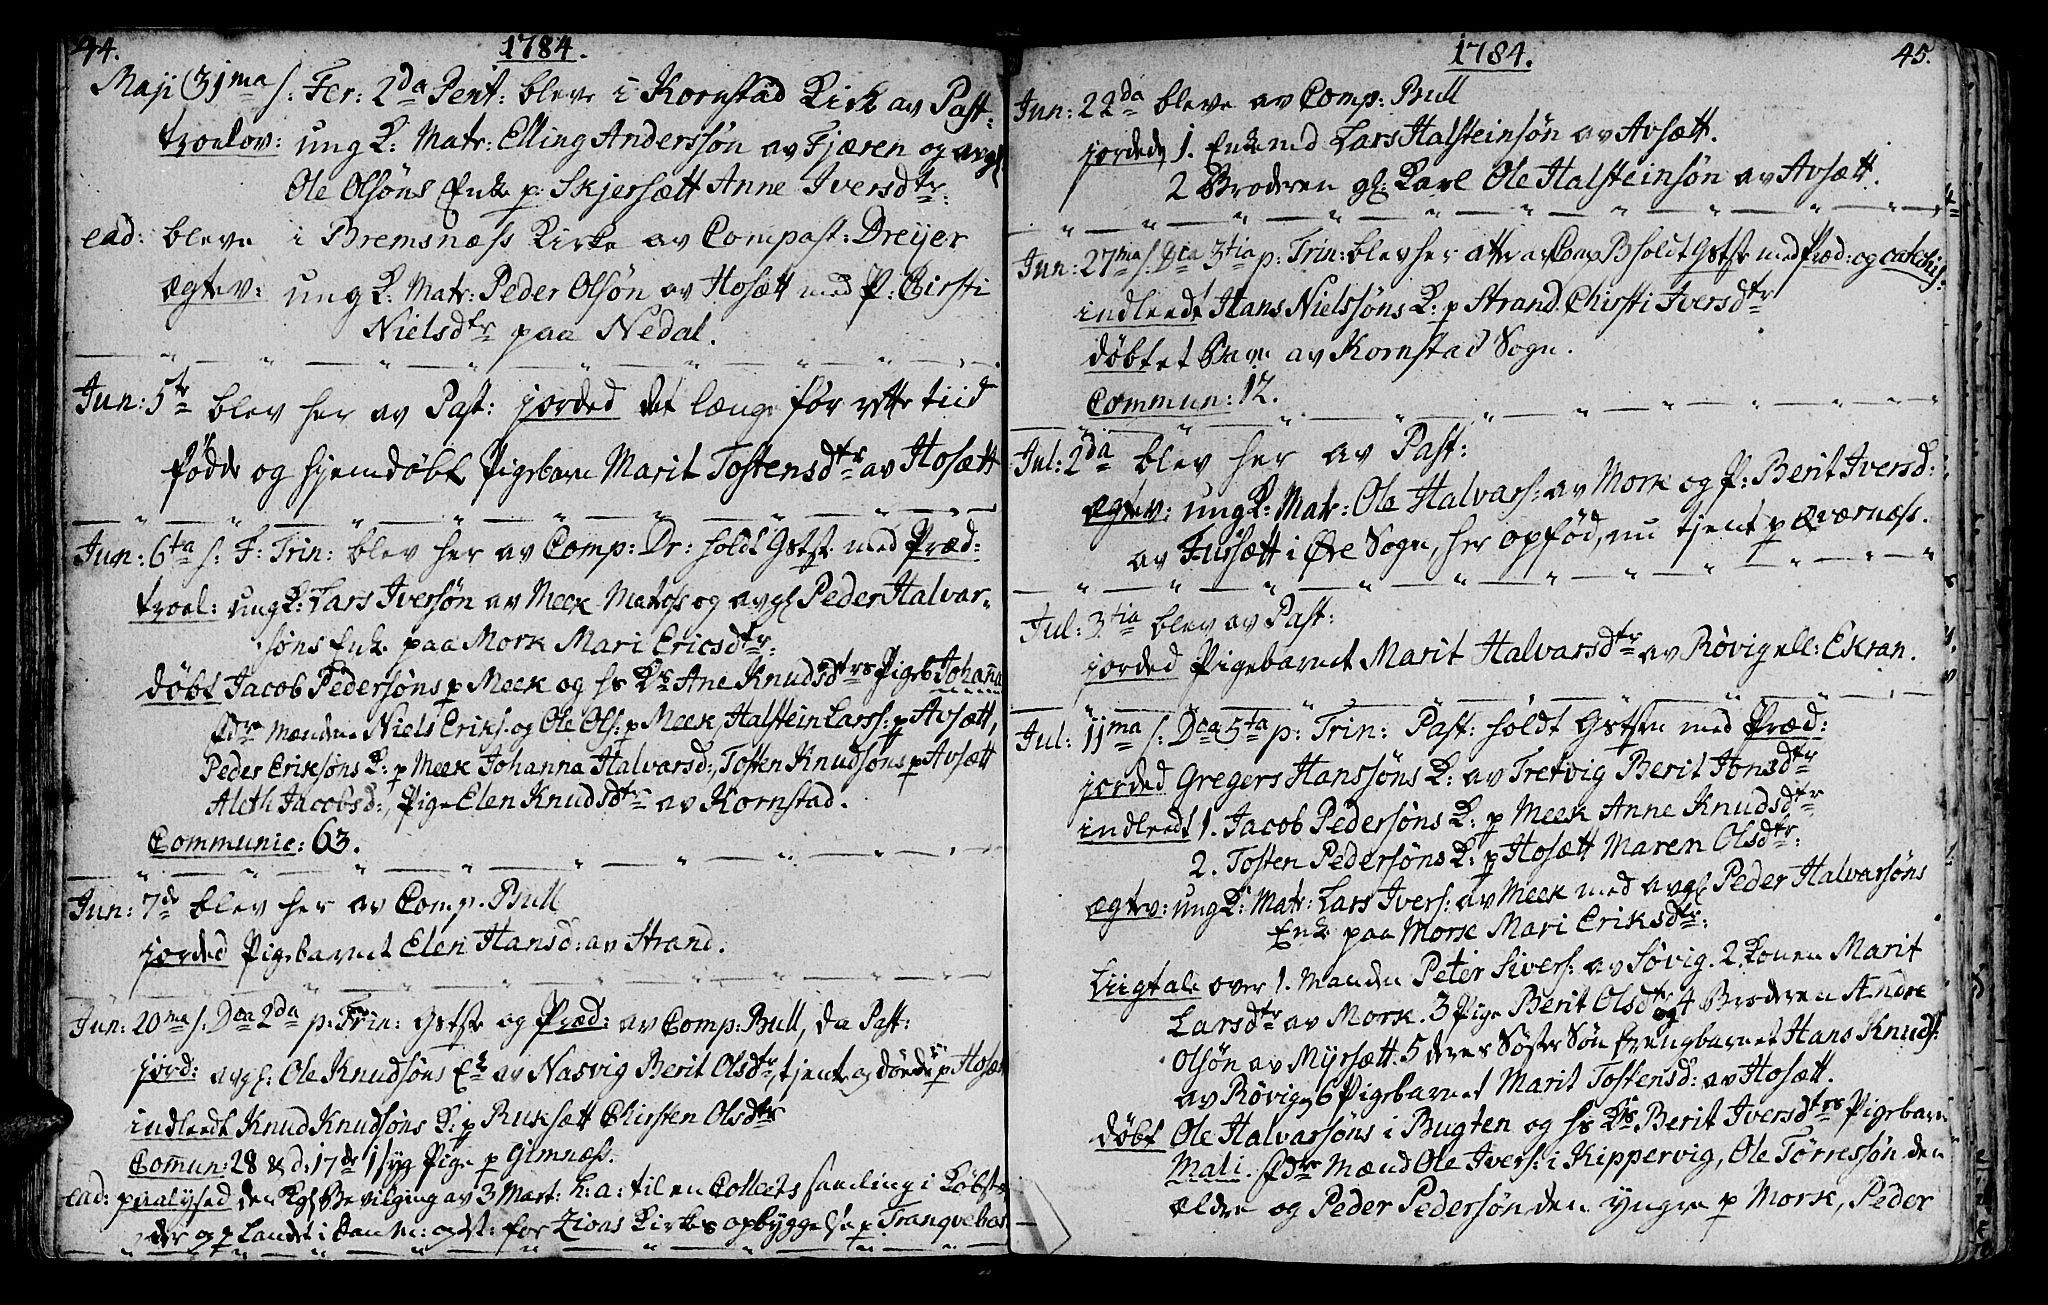 44.
1784.
Maji (31ma s: Fer: 2da Pent: bleve i Kornstad Kirk av Past:
troelov: ung K: Matr: Elling Anderssøn av Fjæren og avgl
Ole Olsøns Enke p: Skjersætt Anne Iversdtr:
ead: bleve i Bremsnæss Kirke av Compast: Dreijer
ægtev: ung K: Matr: Peder Olsøn av Hosætt med P: Chirsti
Nielsdtr paa Nedal.
Jun: 5te blev her av Past: jorded det længe før rette tiid
fødde og hjemdøbt Pigebarn Marit Tostensdtr av Hosætt
Jun: 6ta s: F: Trin: blev her av Comp: Dr: holdt Gstst med Præd:
troel: ung K: Lars Iversøn av Meek Matros og avgl Peder Halvar-
søns Enke paa Mork Mari Ericsdtr:
døbt Jacob Pedersøns p Meek og hs Ks Ane Knudsdtrs Pigeb Johanna
fdre Mændene Niels Eriks: og Ole Ols: p Meek, Halstein Larss: p Avsætt,
Peder Eriksøns K: p Meek Johanna Halvarsd:, Tosten Knudsøns p Avsætt
Aleth Jacobsd:, Pige Elen Knudsdtr av Kornstad.
Communic: 63.
Jun: 7de blev her av Comp. Bull
jorded Pigebarnet Elen Hansd: av Strand.
Jun: 20ma s: Dca 2da p: Trin: Gstst og Præd: av Comp: Bull, da Past:
jord: avgl: Ole Knudsøns Ek av Nasvig Berit Olsdtr, tjente og døde p Hosæt
indleedt Knud Knudsøns K: p Ruksætt Chirsten Olsdtr
Comun: 28 & d: 17de 1 syg Pige p Gimnæss.
ead: paalysed den Kgl Bevilging av 3 Mart: h: a: til en Collects samling i Købstæ
der og p Landet i Danm: og for Zions Kirkes opbyggelse p Tranquebar
1784.
45.
Jun: 22da bleve av Comp: Bull
jordede 1. Enkemd Lars Halsteinsøn av Avsætt.
2 Broderen gl: Karl Ole Halsteinsøn av Avsætt.
Jun: 27ma s: Dca 3tia p: Trin: blev her atter av Comp B holdt Gstst med Præd: og catechis:
indleedt Hans Nielssøns K: p Strand Chirsti Iversdtr
døbt et Barn av Kornstad Sogn.
Commun: 12.
Jul: 2da blev her av Past:
ægtev: ung K: Matr: Ole Halvars: av Mork og P: Berit Iversd:
av Fussætt i Øre Sogn, her opfød, nu tjent p Qværnæss.
Jul: 3tia blev av Past:
jorded Pigebarnet Marit Halvarsdtr av Røvig ell: Ekran.
Jul: 11ma s: Dca 5ta p: Trin: Past: holdt Gstsn med Præd:
jorded Gregers Hanssøns K: av Tretvig Berit Jonsdtr
indleedt 1. Jacob Pedersøns K: p Meek Anne Knudsdtr
2. Tosten Pedersøns K: p Hosætt Maren Olsdtr:
ægtev: ung K: Matr: Lars Ivers: av Meek med avgl Peder Halvarsøns
Enke paa Mork Mari Eriksdtr:
Liigtale over 1. Manden Peter Sivers: av Søvig. 2. Konen Marit
Larsdtr av Mork. 3 Pige Berit Olsdtr og 4 Broderen Andre
Olsøn av Myrsætt. 5 deres Søster Søn Drengbarnet Hans Knuds:
av Røvig, 6 Pigebarnet Marit Tostensd: av Hosætt.
døbt Ole Halvarsøns i Bugten og hs Ks Berit Iversdtrs Pigebarn
Mali. fdre Mænd Ole Ivers: i Kippervig, Ole Tørressøn den
ældre og Peder Pedersøn den yngre p Mork, Peder